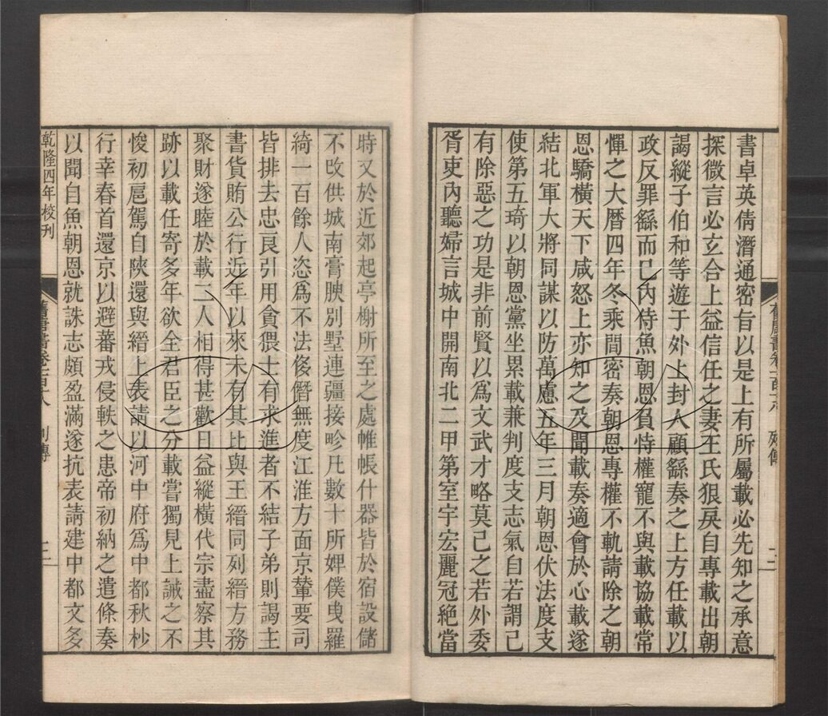 書卓英倩潛通密旨以是上有所屬載必先知之承意
探微言必玄合上益信任之妻王氏狠戾自專載出朝
謁縱子伯和等遊于外上封人顧繇奏之上方任載以
政反罪繇而已內侍魚朝恩負恃權寵不與載協載常
憚之大曆四年冬乘間密奏朝恩專權不軌請除之朝
恩驕橫天下咸怒上亦知之及聞載奏適會於心載遂
結北軍大將同謀以防萬慮五年三月朝恩伏法度支
使第五琦以朝恩黨坐累載兼判度支志氣自若謂己
有除惡之功是非前賢以爲文武才略莫己之若外委
胥吏內聽婦言城中開南北二甲第室宇宏麗冠絶當
時又於近郊起亭榭所至之處帷帳什器皆於宿設儲
不改供城南膏腴別墅連疆接畛凡數十所婢僕曳羅
綺一百餘人恣爲不法侈僭無度江淮方面京輦要司
皆排去忠良引用貪猥士有求進者不結子弟則謁主
書貨賄公行近年以來未有其比與王縉同列縉方務
聚財遂睦於載二人相得甚歡日益縱橫代宗盡察其
跡以載任寄多年欲全君臣之分載嘗獨見上誡之不
悛初扈駕自陝還與縉上表請以河中府爲中都秋杪
行幸春首還京以避蕃戎侵軼之患帝初納之遣條奏
以聞自魚朝恩就誅志頗盈滿遂抗表請建中都文多
乾隆四年校刊
舊唐書卷一百十八 列傳